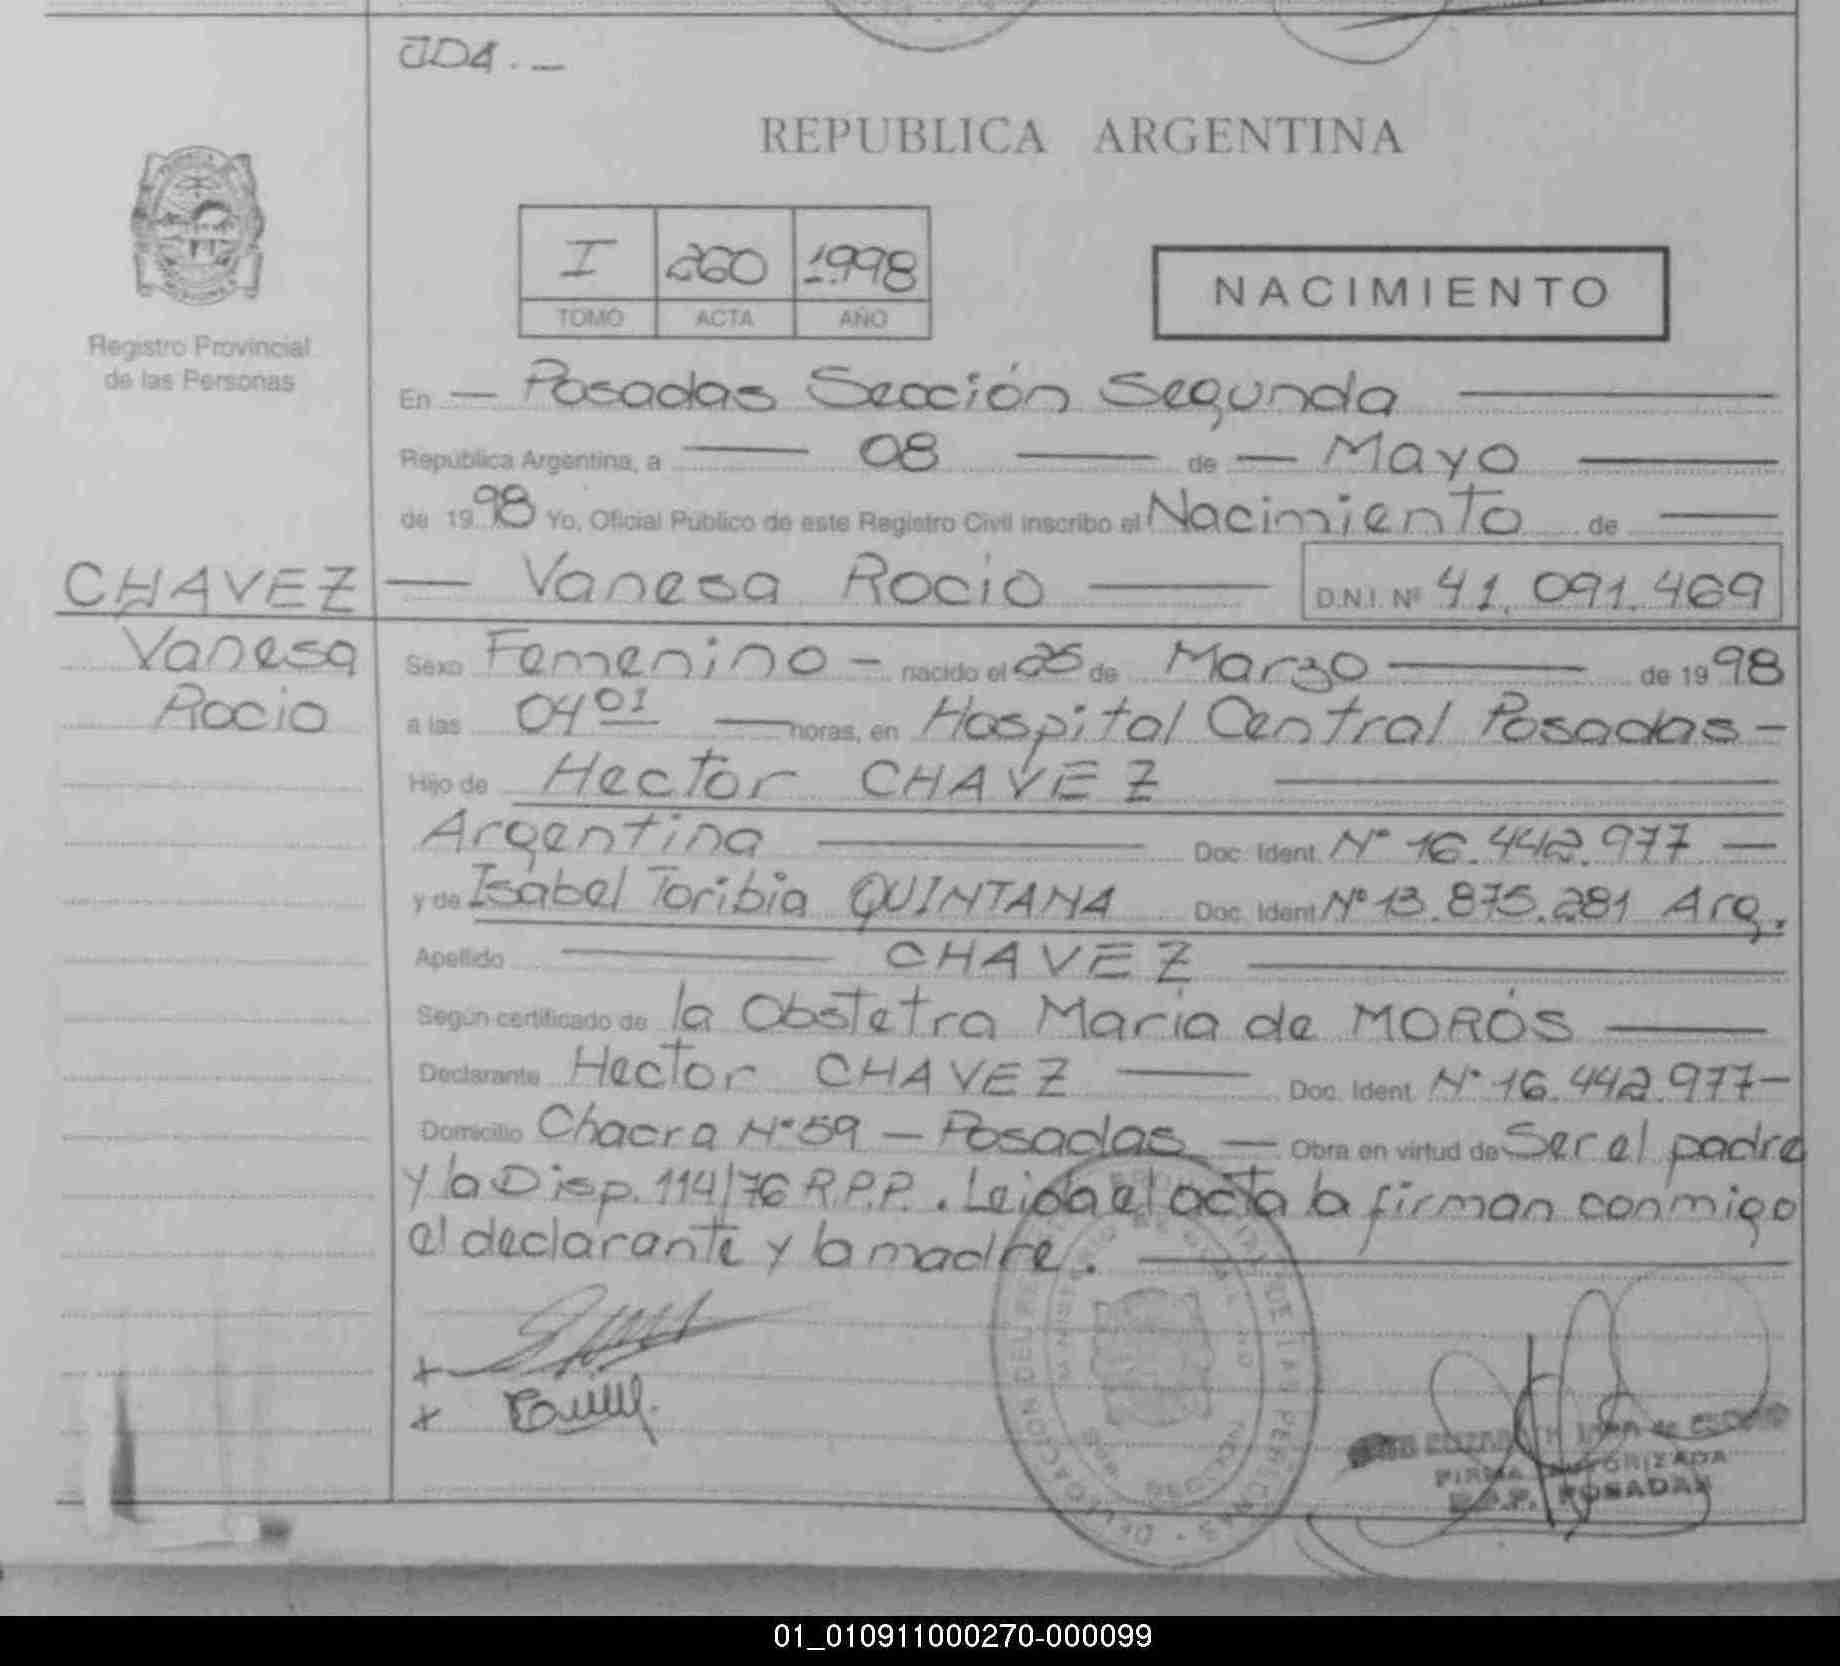 JDA. —
REPUBLICA ARGENTINA
I 260 1998
TOMO ACTA AÑO
NACIMIENTO
Registro Provincial
de las Personas
En — Posadas Sección Segunda
República Argentina, a 08 de — Mayo
de 1998 Yo, Oficial Público de este Registro Civil inscribo el Nacimiento de
CHAVEZ — Vanesa Rocio D.N.I. Nº 41.091.469
Vanesa
Rocio
Sexo Femenino - nacido el 25 de Marzo de 1998
a las 04 01 horas, en Hospital Central Posadas -
Hijo de Hector CHAVEZ
Argentina Doc. Ident. Nº 16.442.977 —
y de Isabel Toribia QUINTANA Doc. Ident. Nº 13.875.281 Arg.
Apellido CHAVEZ
Según certificado de la Obstetra María de MORÓS
Declarante Hector CHAVEZ Doc. Ident. Nº 16.442.977 -
Domicilio Chacra Nº 59 - Posadas — Obra en virtud de Ser el padre
y la Disp. 114/76 R.P.P. . Leida el acta la firman conmigo
el declarante y la madre.
FIRMA AUTORIZADA
POSADAS
01_010911000270-000099